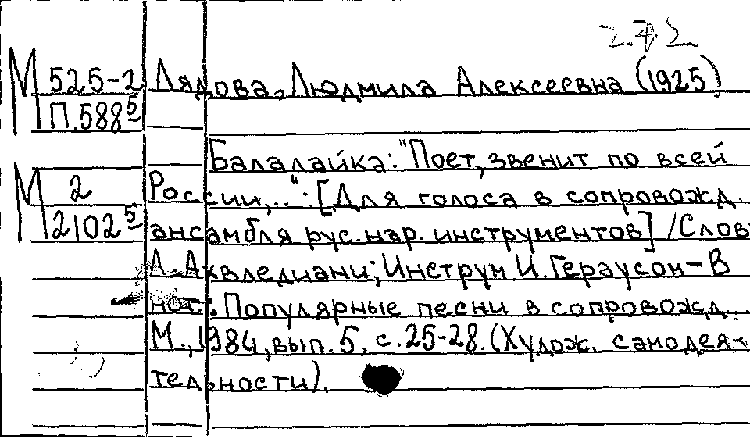 2.72
М 525-2 Лядова, Людмила Алексеевна (1925)
П.588⁵
Балалайка: "Поет, звенит по всей
М 2 России,..": [Для голоса в сопровожд.
2102⁵ ансамбля рус. нар. инструментов] /Слов
А. Ахвледиани; Инструм И. Гераусом – В
нот.: Популярные песни в сопровожд.
М., 1984, вып. 5, с. 25-28. (Худож. самодея-
тельности).